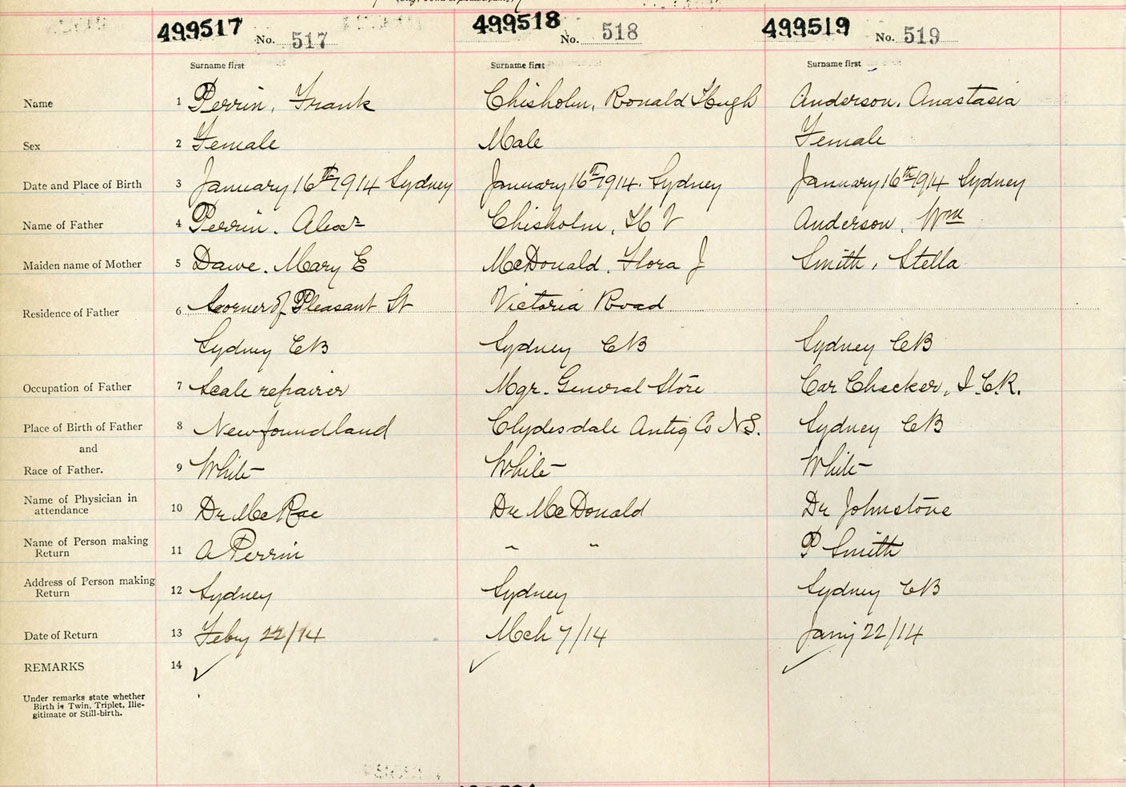 499517 No. 517 499518 No. 518 499519 No. 519
Surname first Surname first Surname first
Name 1 Perrin, Frank Chisholm, Ronald Hugh Anderson, Anastasia
Sex 2 Female Male Female
Date and Place of Birth 3 January 16th 1914 Sydney January 16th 1914. Sydney January 16th 1914 Sydney
Name of Father 4 Perrin, Alexr Chisholm, H V Anderson, Wm
Maiden name of Mother 5 Dawe, Mary E McDonald, Flora J Smith, Stella
Residence of Father 6 Corner of Pleasant St Victoria Road
Sydney CB Sydney CB Sydney CB
Occupation of Father 7 Scale repairer Mgr. General Store Car Checker, I.C.R.
Place of Birth of Father 8 Newfoundland Clydesdale Antig Co N.S. Sydney CB
and
Race of Father. 9 White White White
Name of Physician in
attendance 10 Dr McRae Dr McDonald Dr Johnstone
Name of Person making
Return 11 A Perrin " " P Smith
Address of Person making
Return 12 Sydney Sydney Sydney CB
Date of Return 13 Feby 22/14 Mch 7/14 Jany 22/14
REMARKS 14 ✓ ✓ ✓
Under remarks state whether
Birth is Twin, Triplet, Ille-
gitimate or Still-birth.